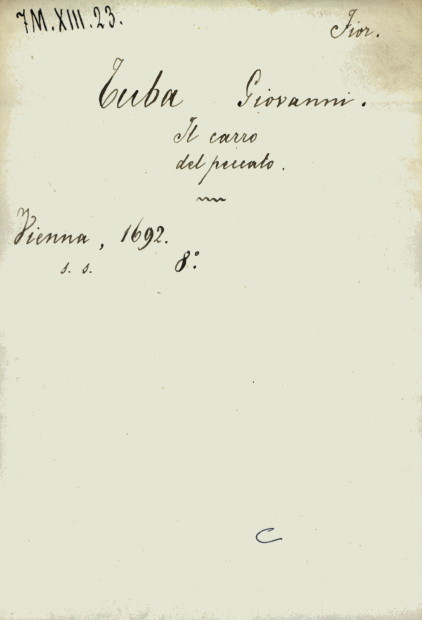 7M.XIII.23.
Fior.
Tuba Giovanni.
Il carro
del peccato.
Vienna, 1692.
s. s. 8°.
C